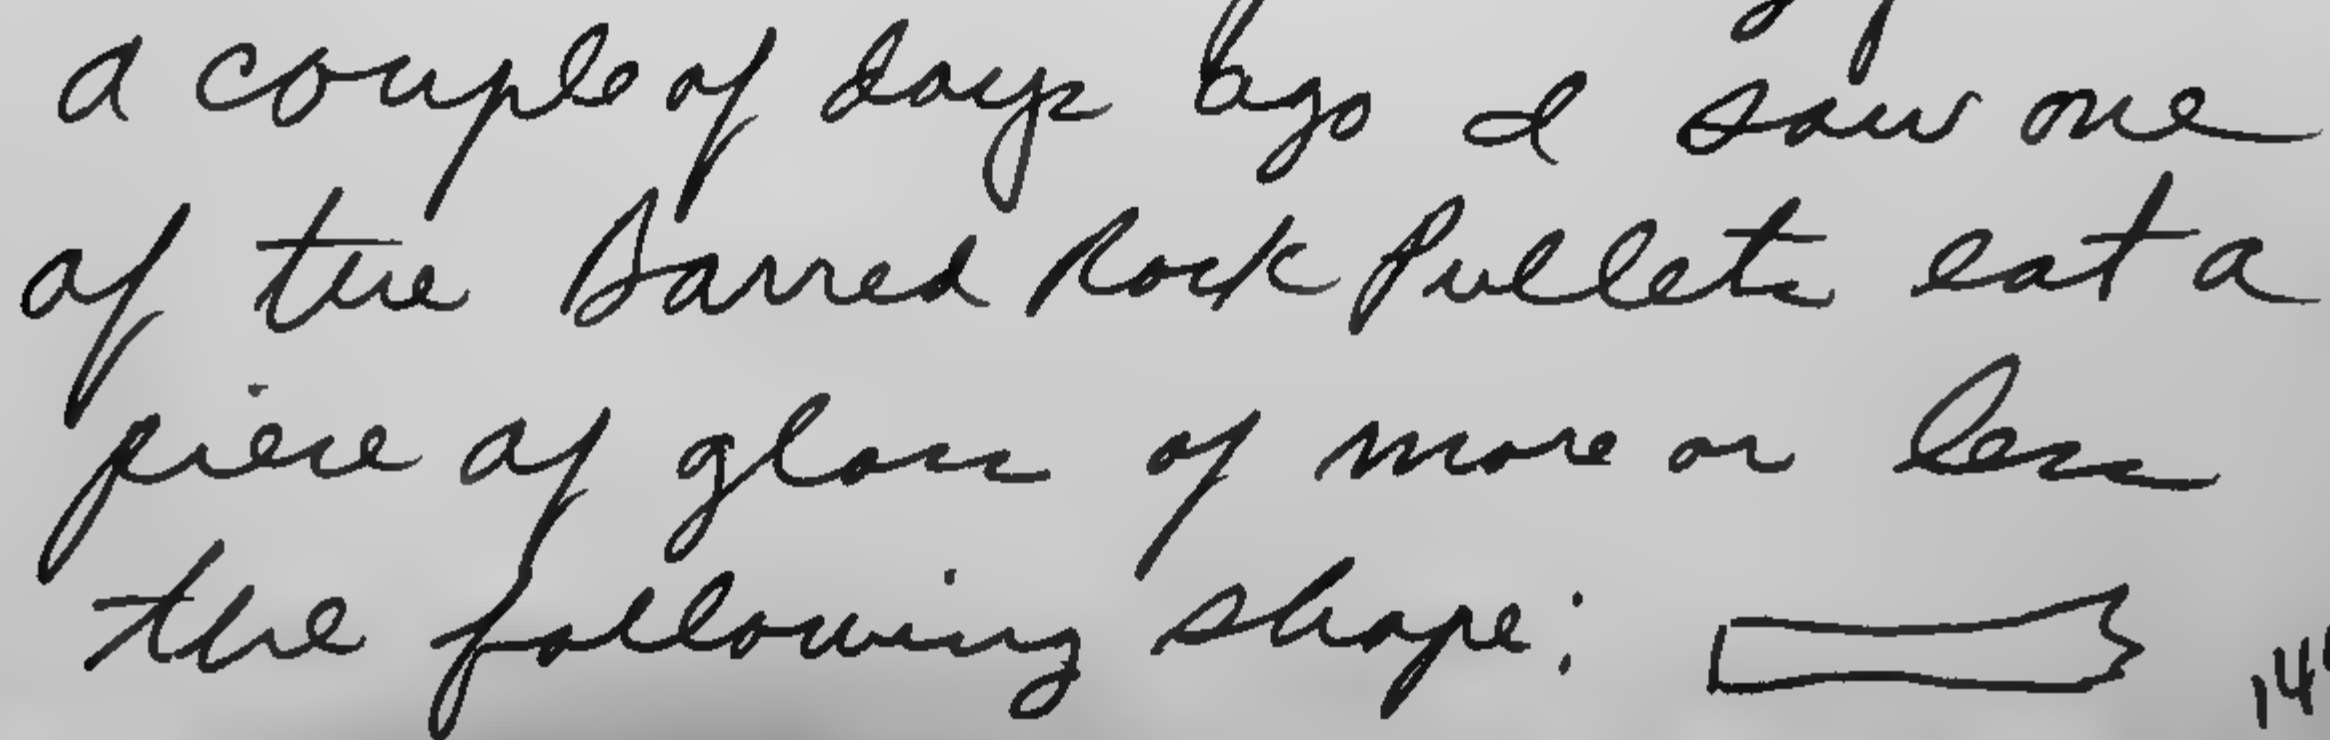 a couple of days ago I saw one
of the Barred Rock Pullets eat a
piece of glass of more or less
the following shape: